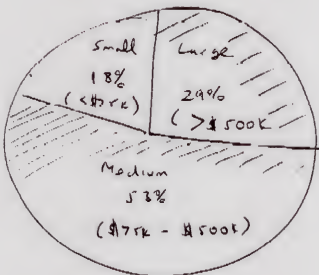 Small
18%
(<$75K)
Large
29%
(>$500K
Medium
53%
($75K - $500K)